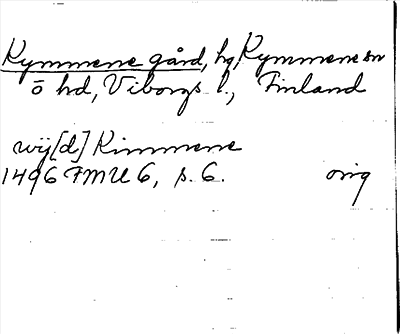 Kymmene gård, hg, Kymmene sn
ö hd, Viborgs l., Finland
wij[d] Kimmene
1496 FMU 6, s. 6. orig